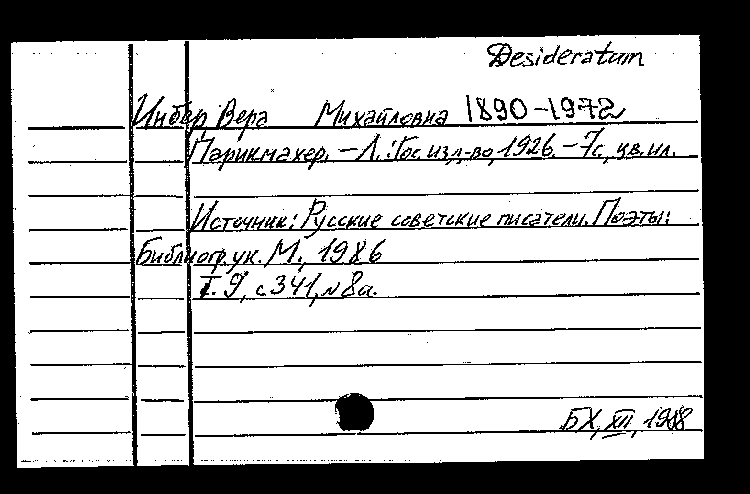 Desideratum
Инбер, Вера Михайловна 1890-1972
Парикмахер. – Л.: Гос. изд-во, 1926. – 7с., цв. ил.
Источник: Русские советские писатели. Поэты:
Библиогр. ук. М., 1986
Т. 9, с 341, № 8а.
БХ, XII, 1988